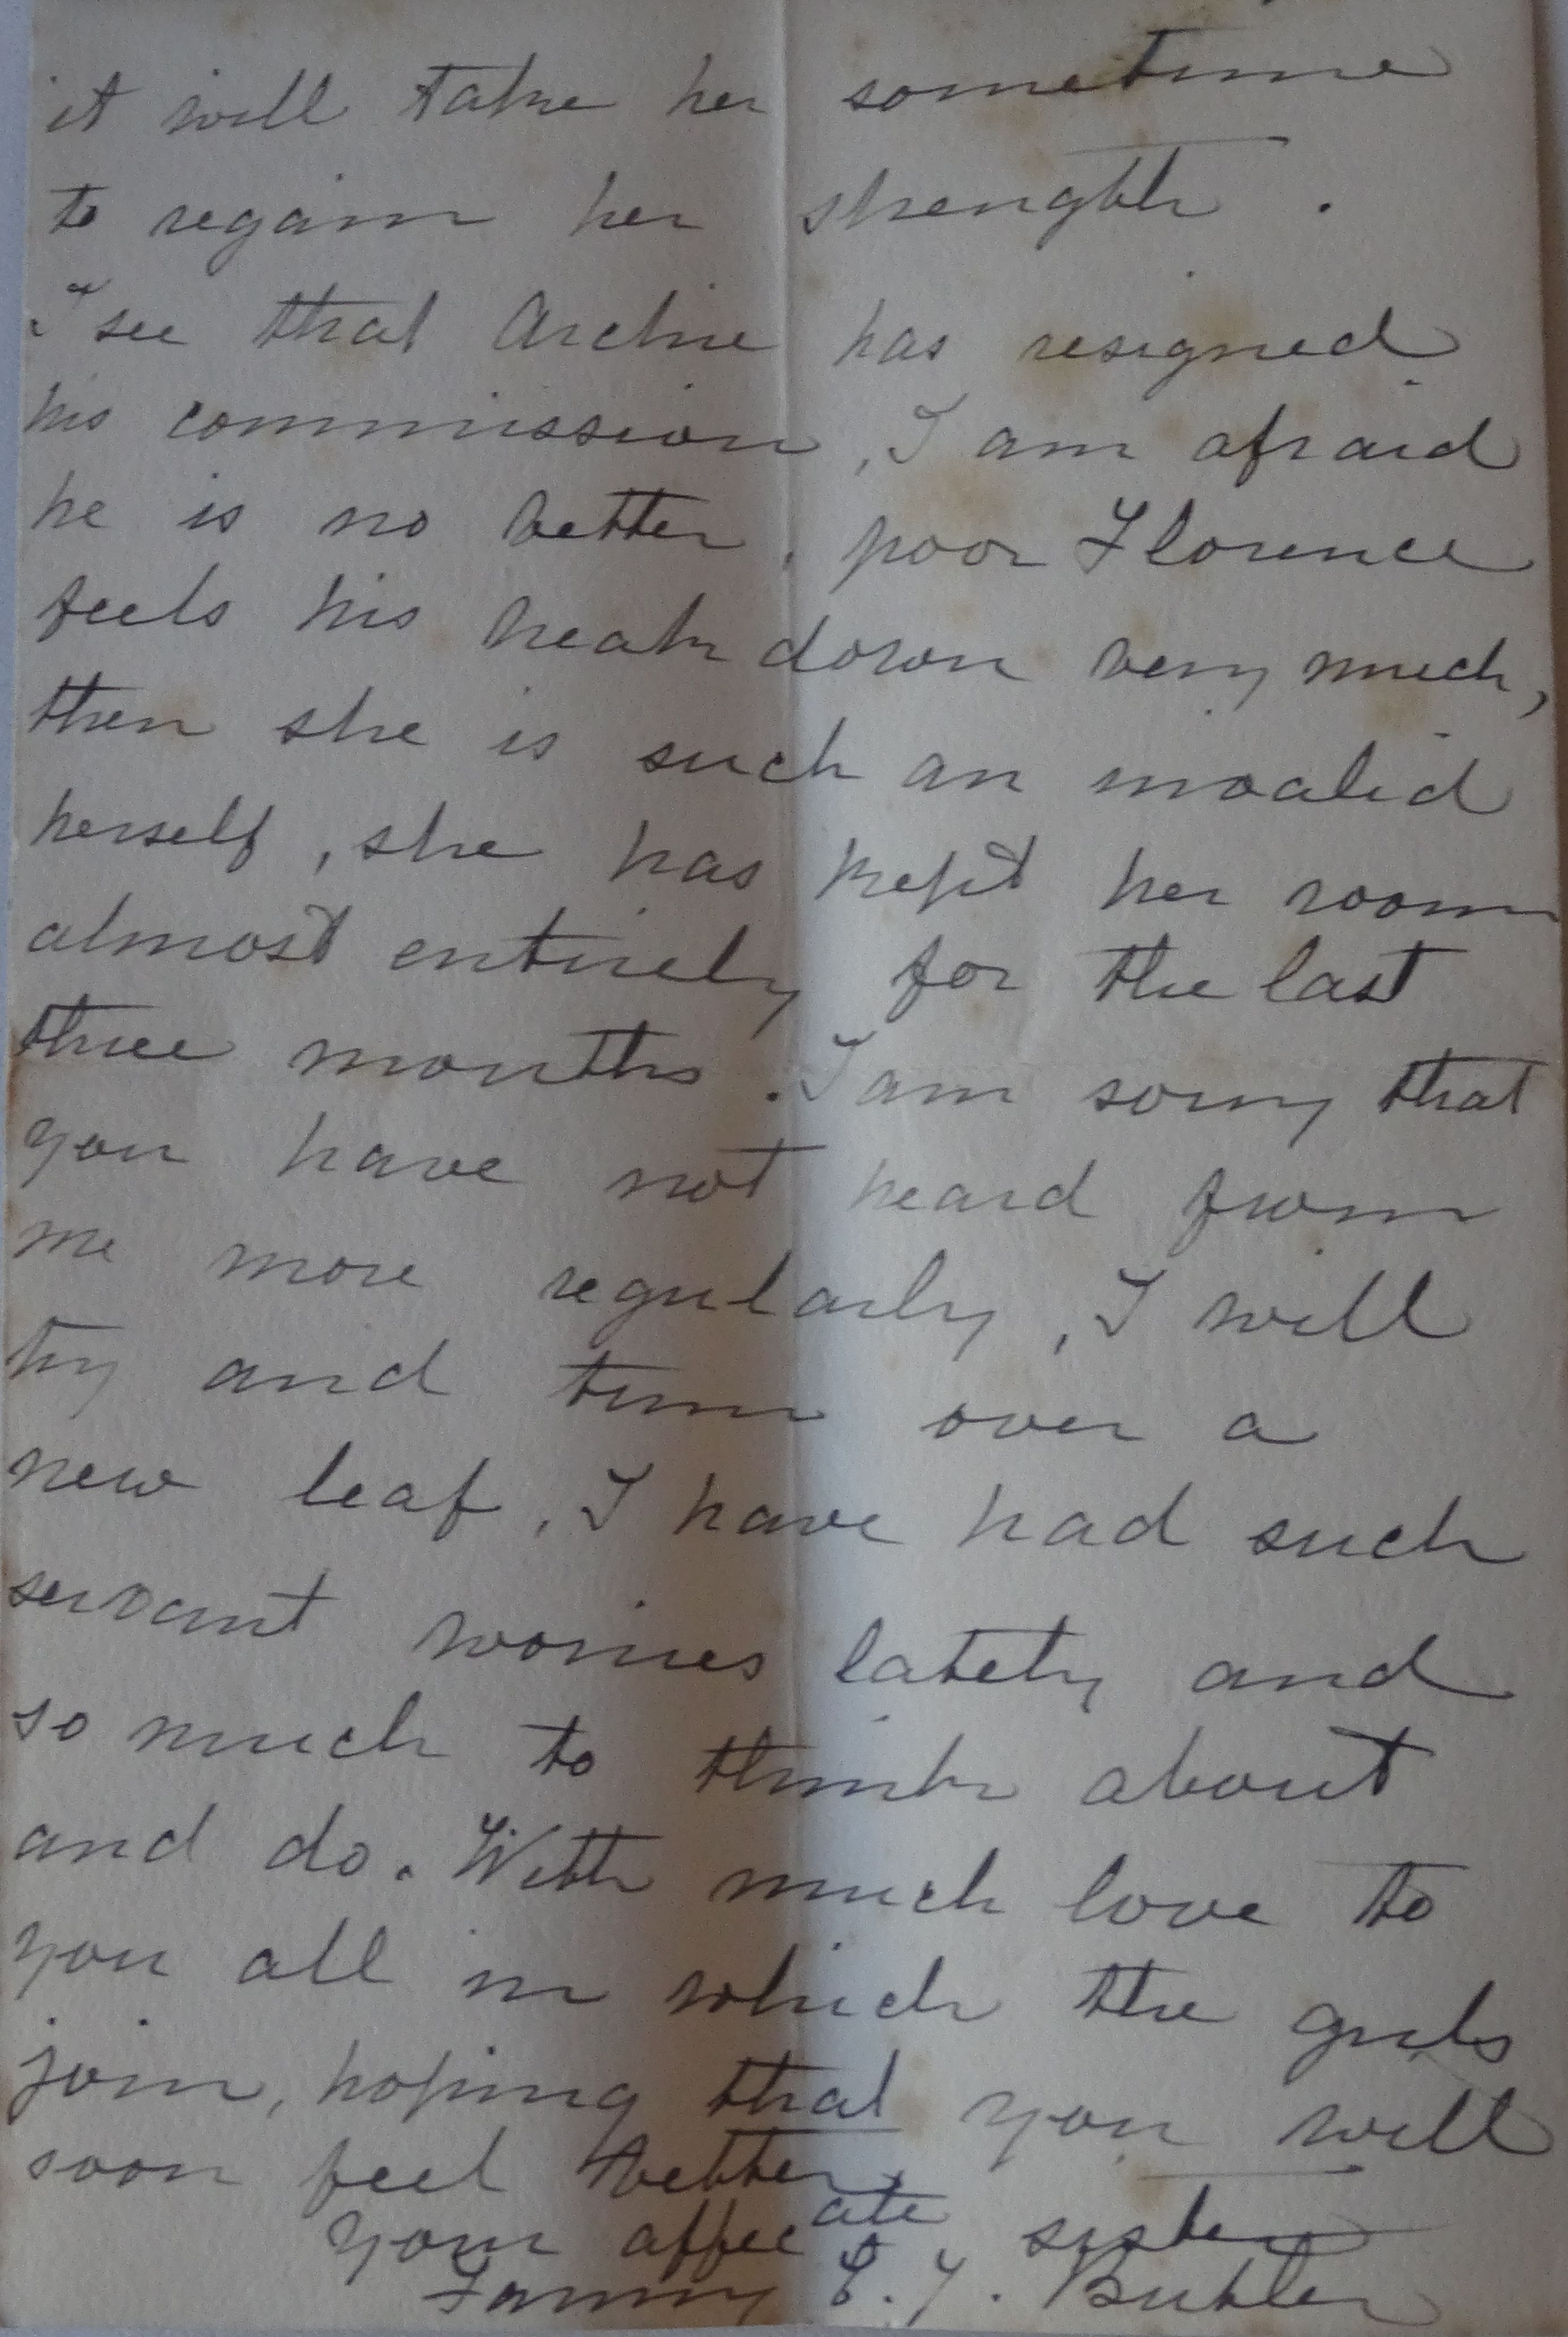 it will take her sometime
to regain her strength.
I see that Archie has resigned
his commission, I am afraid
he is no better, poor Florence
feels his break down very much,
then she is such an invalid
herself, she has kept her room
almost entirely for the last
three months. I am sorry that
you have not heard from
me more regularly, I will
try and turn over a
new leaf, I have had such
servant worries lately and
so much to think about
and do. With much love to
you all in which the girls
join, hoping that you will
soon feel better,
your affecate sister
Fanny E. J. Butler